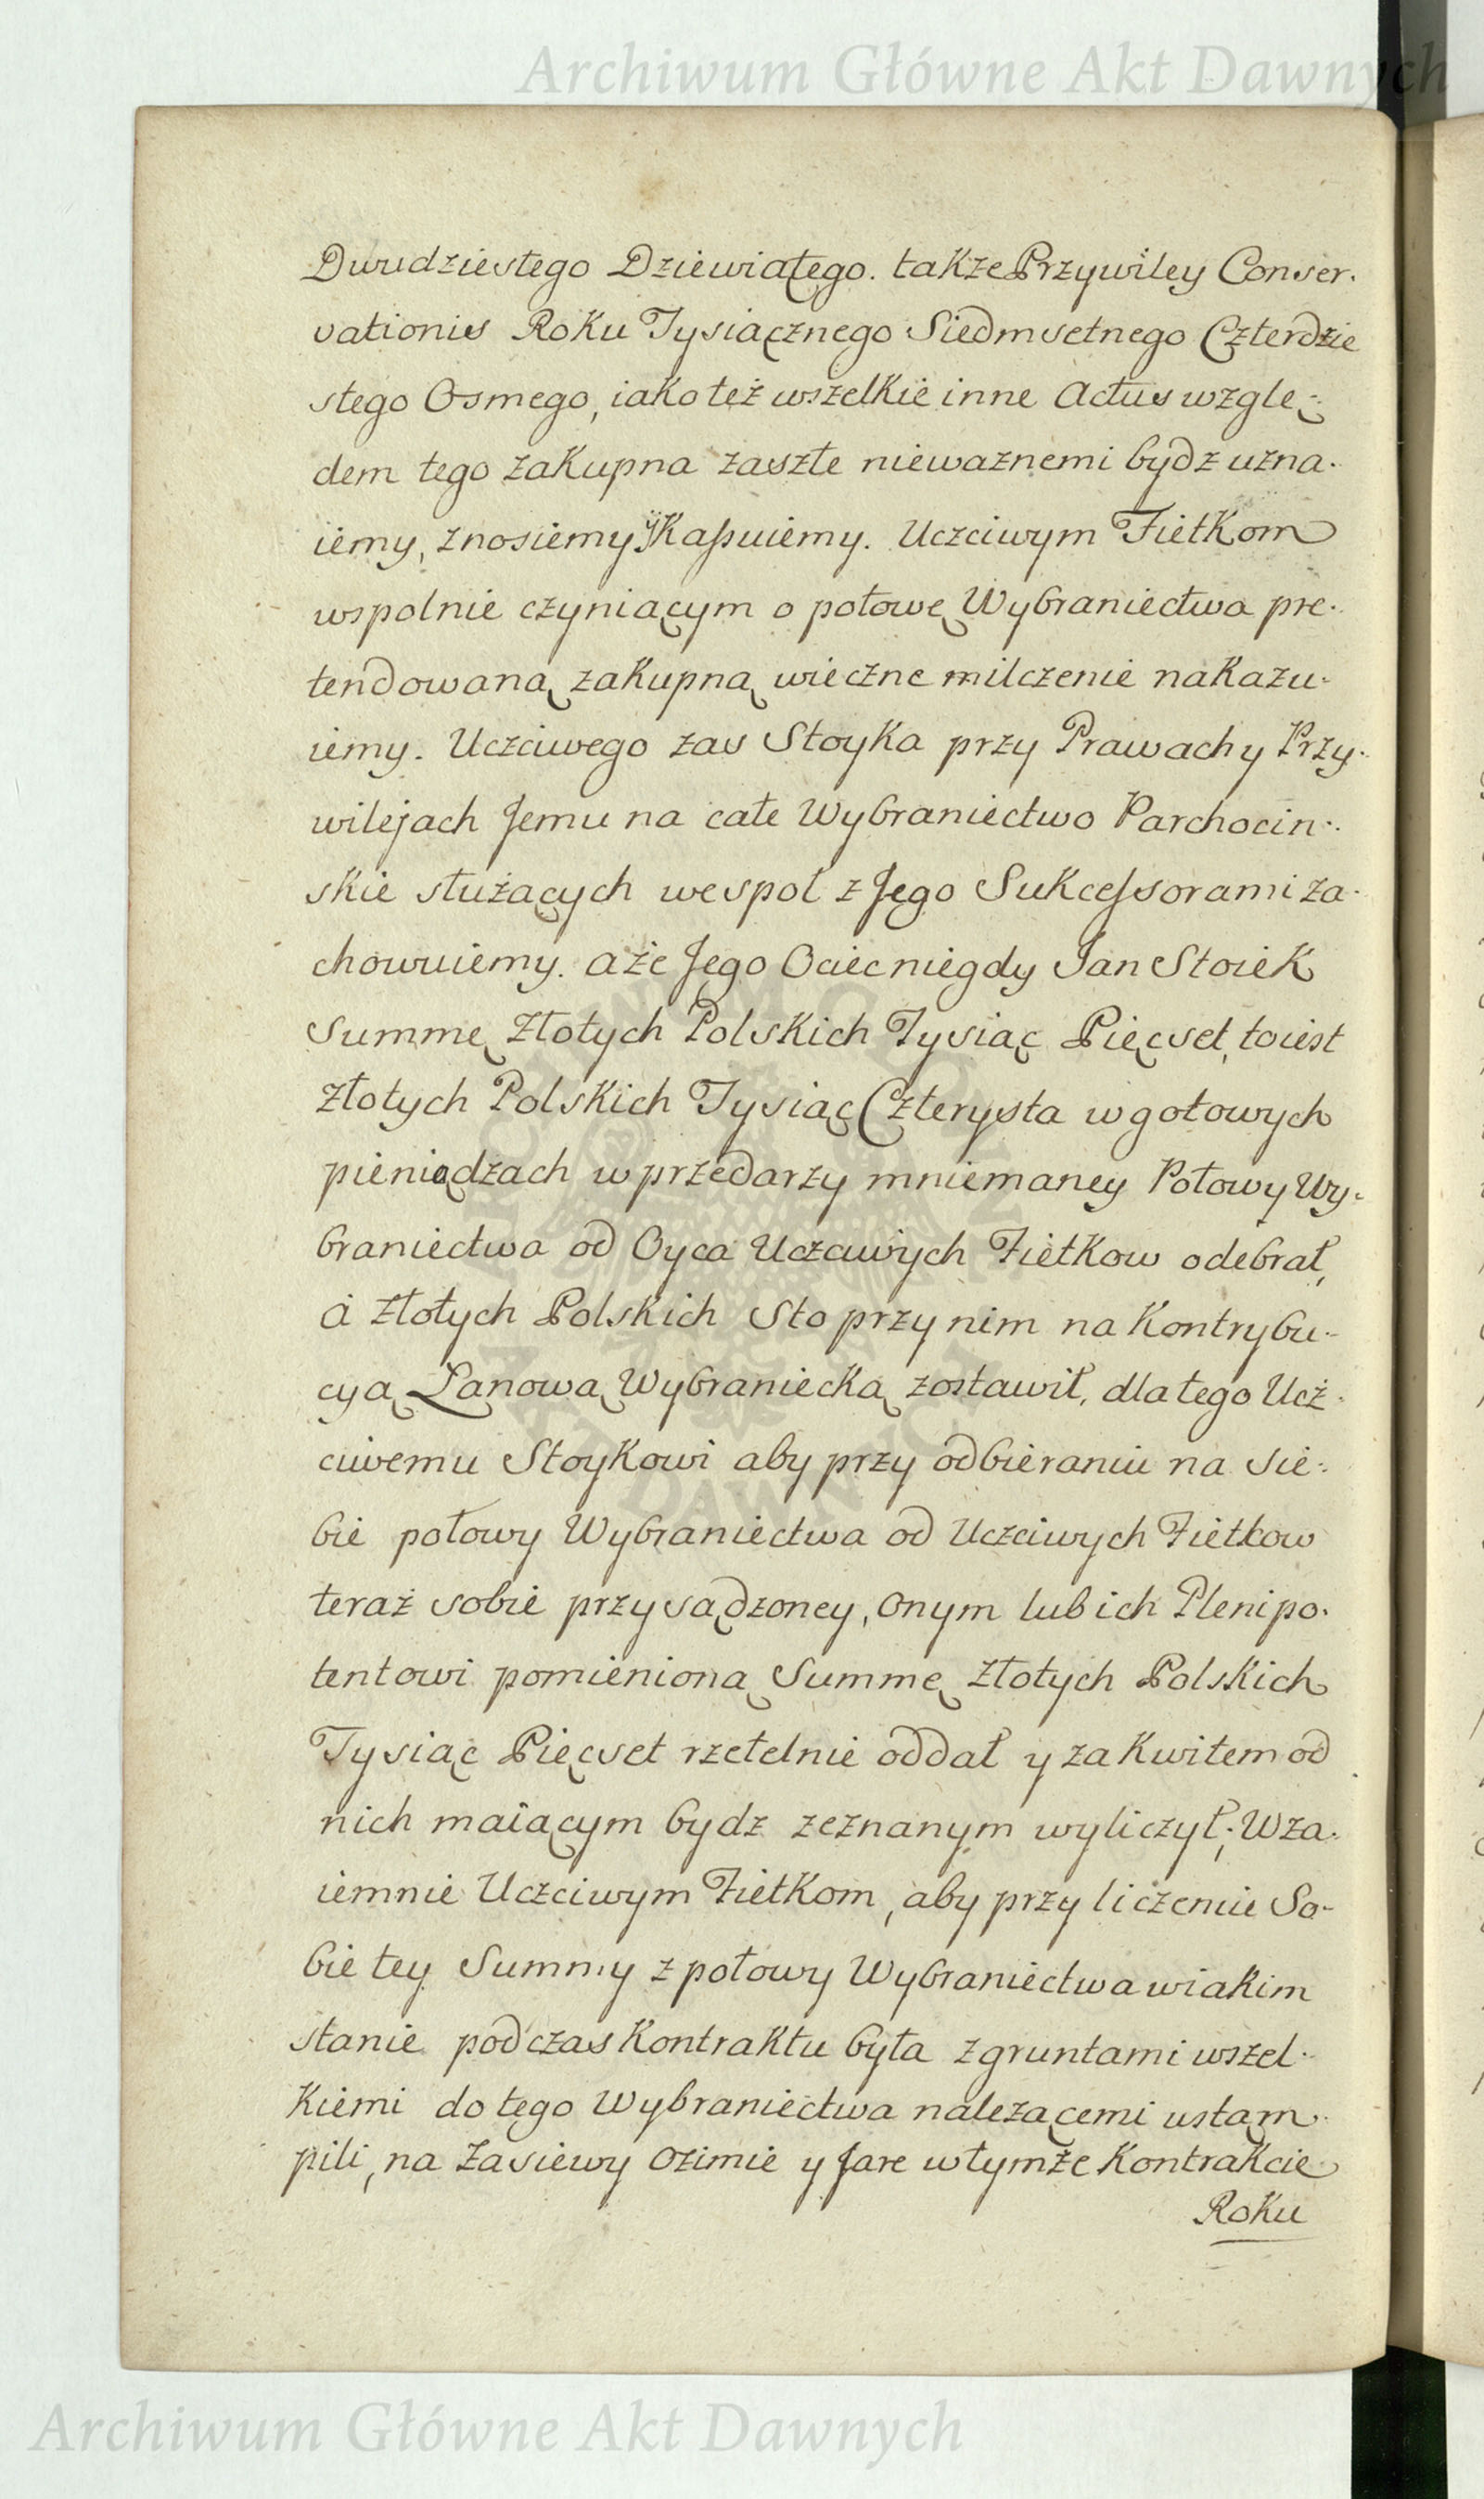 Archiwum Główne Akt Dawnych
Dwudziestego Dziewiątego. także Przywiley Conser.
vationis Roku Tysiącznego Siedmsetnego Czterdzie
stego Osmego, iako też wszelkie inne Actus wzglę-
dem tego zakupna zaszłe nieważnemi bydz uzna.
iemy, znosiemy ÿ Kaſsuiemy. Uczciwym Fietkom
wspolnie czyniącym o połowę Wybraniectwa pre.
tendowaną zakupną wieczne milczenie nakazu.
iemy. Uczciwego zas Stoyka przy Prawach y Przy.
wilejach Jemu na całe Wybraniectwo Parchocin.
skie służących wespoł z Jego Sukceſsorami za.
chowuiemy. a że Jego Ociec niegdy Jan Stoiek
Summę Złotych Polskich Tysiąc Pięcset, toiest
Złotych Polskich Tysiąc Czterysta w gotowych
pieniądzach w przedarzy mniemaney Połowy Wy.
braniectwa od Oyca Uczciwych Fietkow odebrał,
a Złotych Polskich Sto przy nim na Kontrybu-
cyą Łanową Wybraniecką zostawił, dla tego Ucz.
ciwemu Stoykowi aby przy odbieraniu na sie.
bie połowy Wybraniectwa od Uczciwych Fietkow
teraz sobie przysądzoney, onym lub ich Plenipo.
tentowi pomienioną Summę Złotych Polskich
Tysiąc Pięcset rzetelnie oddał y za Kwitem od
nich maiącym bydz zeznanym wyliczył; Wza.
iemnie Uczciwym Fietkom, aby przy liczeniu So-
bie tey Summy z połowy Wybraniectwa w iakim
stanie podczas Kontraktu była z gruntami wszel.
kiemi do tego Wybraniectwa należącemi ustąm.
pili, na Zasiewy Ozimie y Jare w tymże Kontrakcie
Roku
Archiwum Główne Akt Dawnych